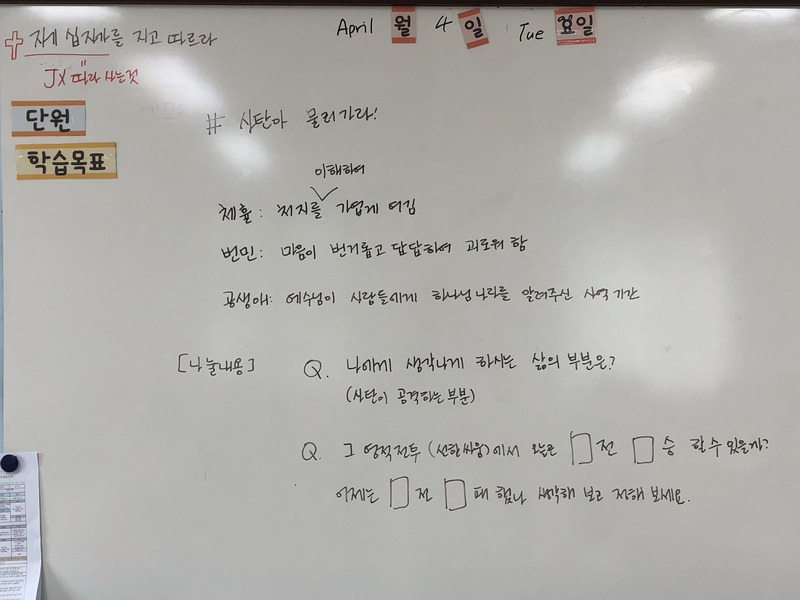 April 월 4 일 Tue 요일
자기 십자가를 지고 따르라
"
JX 따라 사는것
단원
# 사탄아 물러가라!
학습목표
이해하여
체휼: 처지를 가엽게 여김
번민: 마음이 번거롭고 답답하여 괴로워 함
공생애: 예수님이 사람들에게 하나님 나라를 알려주신 사역 기간
[나눌내용] Q. 나에게 생각나게 하시는 삶의 부분은?
(사탄이 공격하는 부분)
Q. 그 영적전투 (선한싸움)에서 오늘은 □전 □승 할 수 있을까?
어제는 □전 □패 했나 생각해 보고 전해 보세요.